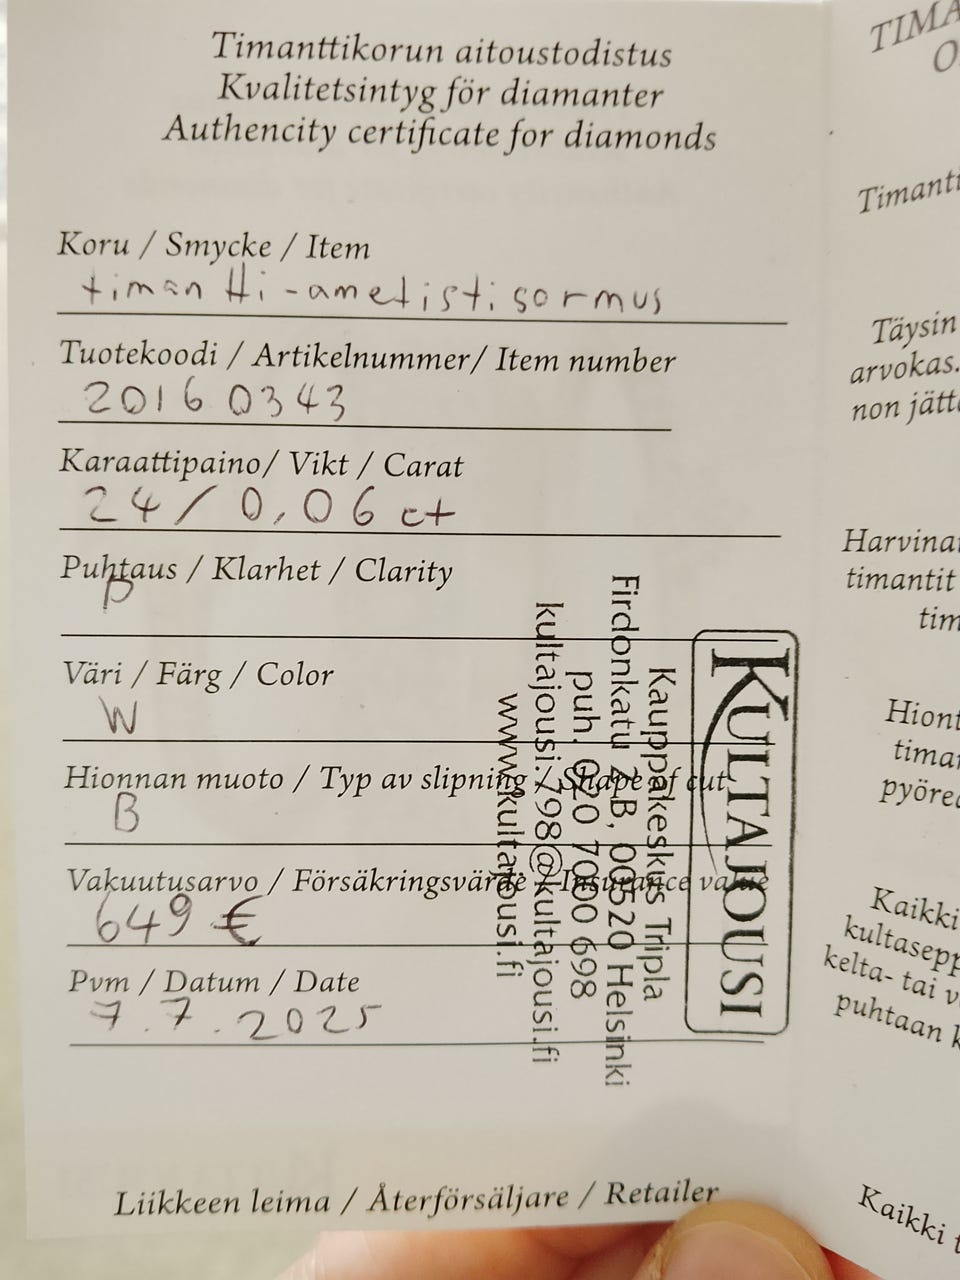 Timanttikorun aitoustodistus
Kvalitetsintyg för diamanter
Authencity certificate for diamonds
Koru / Smycke / Item
timantti-ametistisormus
Tuotekoodi / Artikelnummer/ Item number
20160343
Karaattipaino/ Vikt / Carat
24/0,06 ct
Puhtaus / Klarhet / Clarity
P
Väri / Färg / Color
W
Hionnan muoto / Typ av slipning / Shape of cut
B
Vakuutusarvo / Försäkringsvärde / Insurance value
649 €
Pvm / Datum / Date
7.7.2025
KULTAJOUSI
Kauppakeskus Tripla
Firdonkatu 2 B, 00520 Helsinki
puh. 020 7000 698
kultajousi.798@kultajousi.fi
www.kultajousi.fi
Liikkeen leima / Återförsäljare / Retailer
TIMA
O
Timantti
Täysin
arvokas.
non jättä
Harvinai
timantit
tim
Hiont
timan
pyöreä
Kaikki
kultasepp
kelta- tai v
puhtaan k
Kaikki t